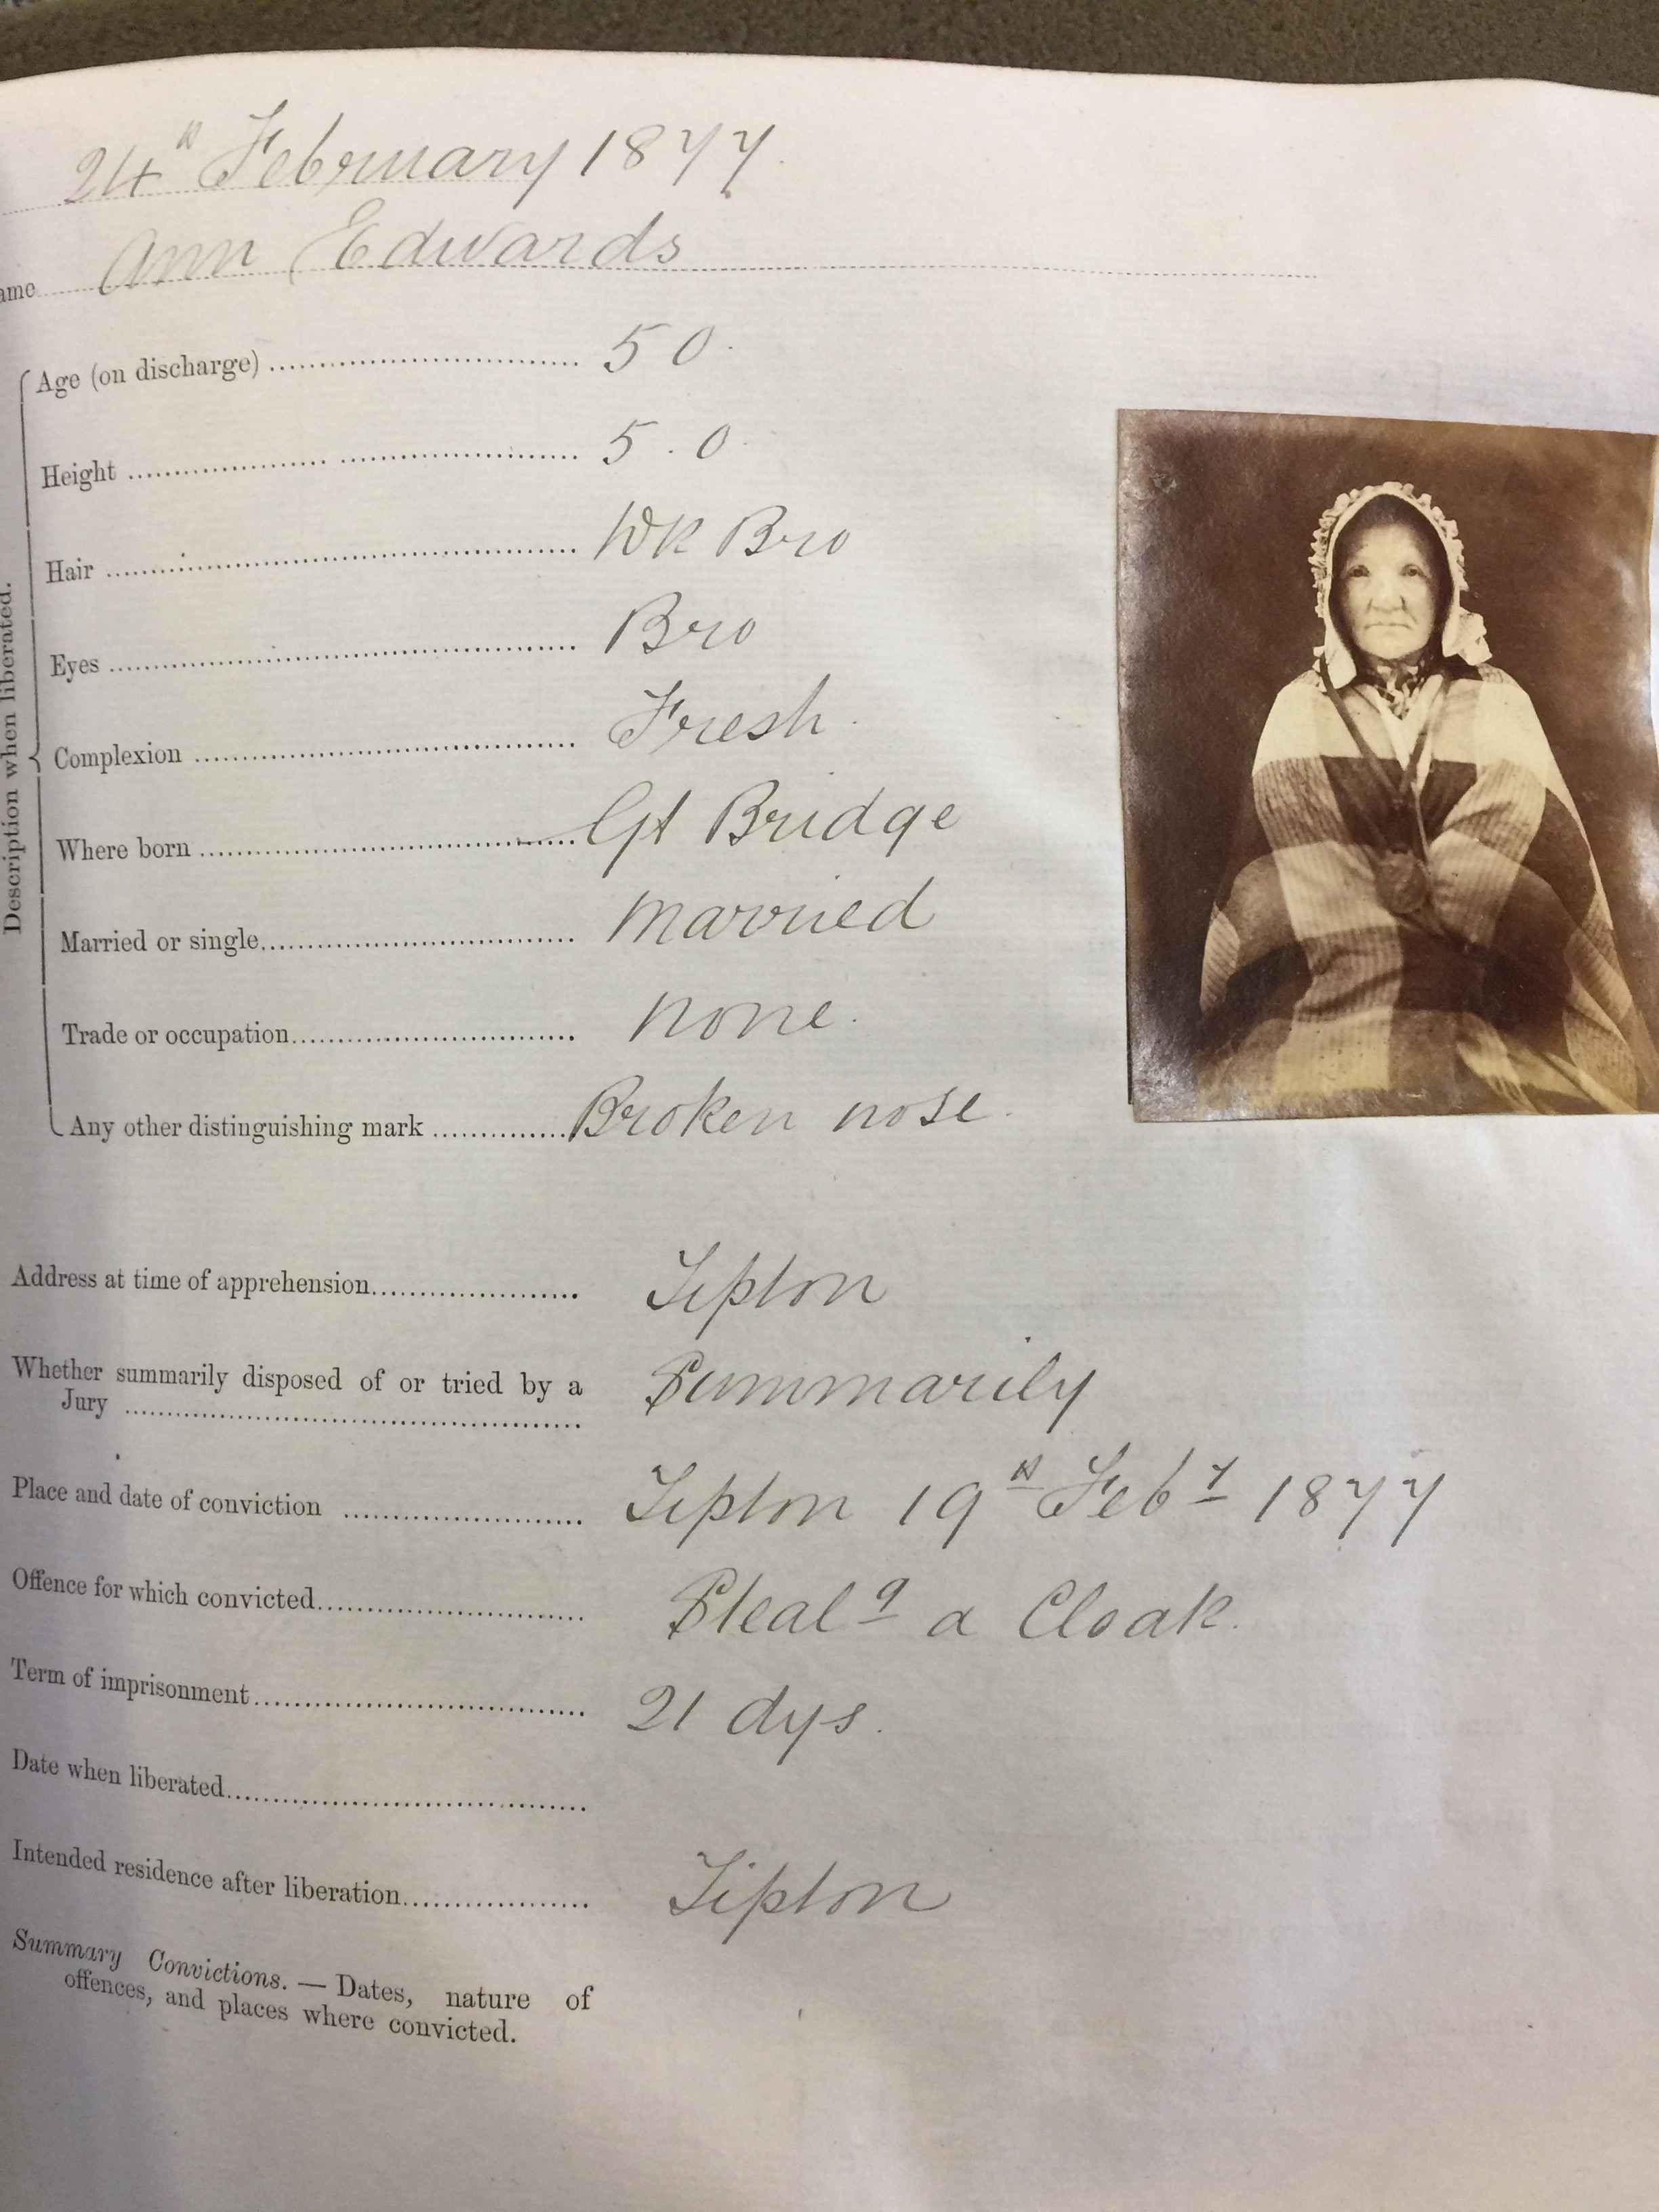 24th February 1877
ame Ann Edwards
Description when liberated.
Age (on discharge) 50
Height 5.0
Hair Dk Bro
Eyes Bro
Complexion Fresh
Where born Gt Bridge
Married or single married
Trade or occupation none.
Any other distinguishing mark Broken nose.
Address at time of apprehension Tipton
Whether summarily disposed of or tried by a
Jury Summarily
Place and date of conviction Tipton 19th Feby 1877
Offence for which convicted Stealg a Cloak.
Term of imprisonment 21 dys.
Date when liberated
Intended residence after liberation Tipton
Summary Convictions. — Dates, nature of
offences, and places where convicted.